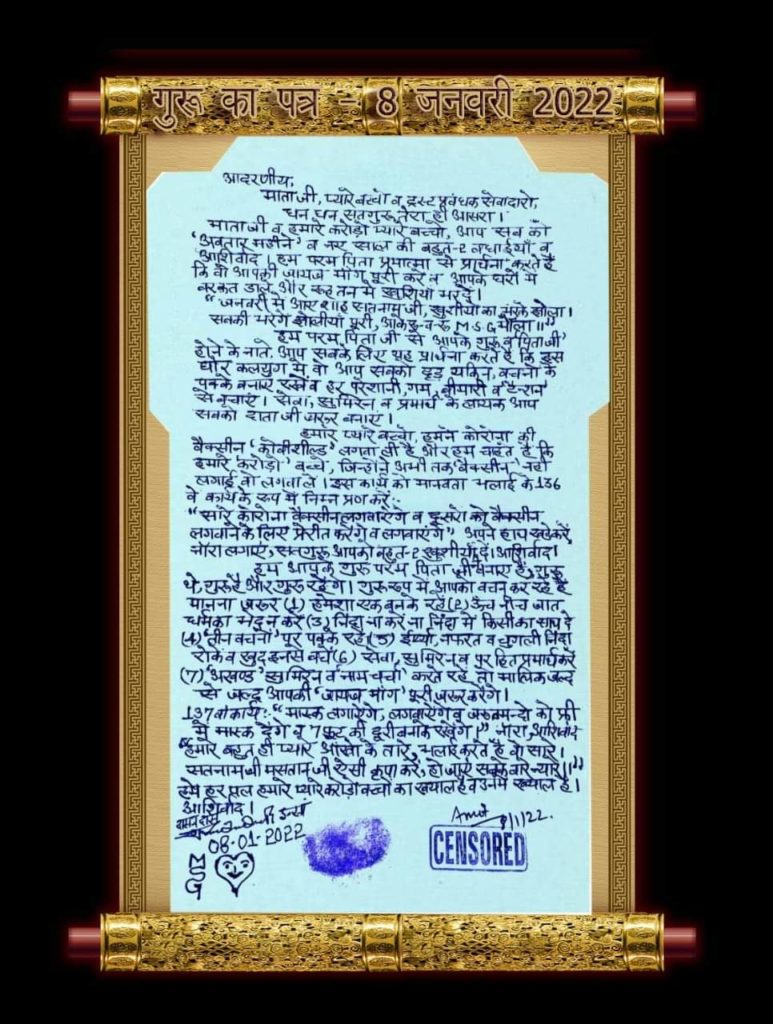 गुरू का पत्र - 8 जनवरी 2022
आदरणीय,
माता जी, प्यारे बच्चो व ट्रस्ट प्रबंधक सेवादारो,
धन धन सतगुरु तेरा ही आसरा।
माता जी व हमारे करोड़ो प्यारे बच्चो, आप सब को
'अवतार महीने' व नए साल की बहुत-2 बधाईयाँ व
आशिर्वाद। हम परम पिता प्रमात्मा से प्रार्थना करते है
कि वो आपकी जायज मांग पूरी करें व आपके घरों में
बरकत डालें और रूह तन में खुशियां भर दें।
"जनवरी में आए शाह सतनाम जी, खुशीयों का
सबकी भरेंगे झोलीयां पूरी, M.S.G मौला।।"
हम परम पिता जी से आपके गुरु व पिता जी
होने के नाते, आप सबके लिए यह प्रार्थना करते है कि इस
घोर कलयुग में वो आप सबको दृढ़ यकिन, वचनो के
पक्के बनाए रखें व हर परेशानी, गम, बीमारी व टेन्शन
से बचाएं। सेवा, सुमिरन व प्रमार्थ के लायक आप
सबको दाता जी जरूर बनाएं।
हमारे प्यारे बच्चो, हमने कोरोना की
वैक्सीन 'कोवीशील्ड' लगवा ली है और हम चाहते है कि
हमारे 'करोड़ो' बच्चे, जिन्होने अभी तक वैक्सीन नही
लगाई वो लगवा लें। इस कार्य को मानवता भलाई के 136
वे कार्य के रूप में निम्न प्रण करें:-
"सारे कोरोना वैक्सीन लगवाएंगे व दूसरों को वैक्सीन
लगवाने के लिए प्रेरीत करेंगे व लगवाएंगे" अपने हाथ खड़े करें
नारा लगाएं, सतगुरु आपको बहुत-2 खुशीयाँ दें। आशिर्वाद।
हम आपके गुरु परम पिता जी बनाए है, गुरु
थे, गुरु है और गुरु रहेंगे। गुरु रूप में आपको वचन कर रहे है
मानना जरूर (1) हमेशा एक बनके रहें (2) ऊंच नीच जात
धर्म का भेद न करें (3) निंदा ना करें ना निंदा में किसी का साथ दें
(4) 'तीन वचनों' पर पक्के रहें (5) ईर्ष्या, नफरत व चुगली निंदा
रोकें व खुद इनसे बचें (6) सेवा, सुमिरन व पर हित प्रमार्थ करें
(7) 'अखण्ड' सुमिरन व नाम चर्चा करते रहें तो मालिक जल्द
से जल्द आपकी 'जायज मांग' पूरी जरूर करेंगे।
137 वां कार्य:- "मास्क लगाएंगे, लगवाएंगे व जरूतमन्दो को फ्री
में मास्क देंगे व 7 फुट की दूरी बनाके रखेंगे।" नारा, आशिर्वाद
"हमारे बहुत ही प्यारे आँखो के तारे, भलाई करते है वो सारे।
सतनाम जी मस्तान जी ऐसी कृपा करें, हो जाएं सबके वारे न्यारे।।"
हमें हर पल हमारे प्यारे करोड़ो बच्चो का खयाल है व उनमें ख्याल है।
आशिर्वाद।
दासन दास
इन्सां
08-01-2022
Amit
8/1/22.
CENSORED
MSG